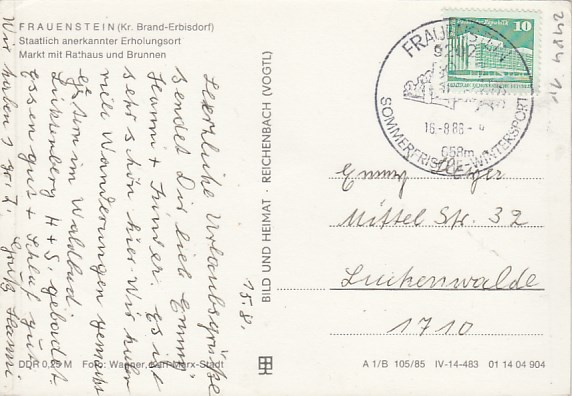 FRAUENSTEIN (Kr. Brand-Erbisdorf)
Staatlich anerkannter Erholungsort
Markt mit Rathaus und Brunnen
15.8.
Herzliche Urlaubsgrüße
sendet Dir lieb Emmy
Hanni + Es ist
sehr schön hier. Wir haben
viele Wanderungen gemacht
gestern im Waldbad
H + S. gebadet.
essen gut + Schlaf gut
Wir haben Gruß Hanni.
BILD UND HEIMAT · REICHENBACH (VOGTL)
FRAUENSTEIN
9242
16.-8.86-
658m
SOMMERFRISCHE-WINTERSPORT
10
2484
Emmy
Mittel Str. 32
Luckenwalde
1710
DDR 0,25 M Foto: Wagner, Karl-Marx-Stadt
A 1/B 105/85 IV-14-483 01 14 04 904